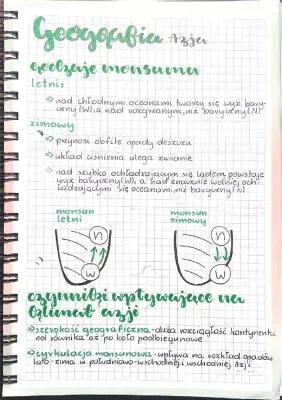 Geografia Azja
rodzaje monsunu
letni:
→nad chłodnymi oceanami tworzy się wyż bary-
czny (W), a nad rozgrzanym, niż baryczny (N)
zimowy
→przynosi obfite opady deszczu
→układ ciśnienia ulega zmianie
→nad szybko ochładzającym się lądem powstaje
wyż baryczny (W), a nad znacznie wolniej och-
ładzającymi się oceanami, niż baryczny (N)
monsun letni
monsun zimowy
N
N
W
W
czynniki wpływające na
klimat azji
→szerokość geograficzna - duża rozciągłość kontynentu
od równika aż po koło podbiegunowe
→cyrkulacja monsunowa - wpływa na rozkład opadów
lato-zima w południowo-wschodniej i wschodniej Azji